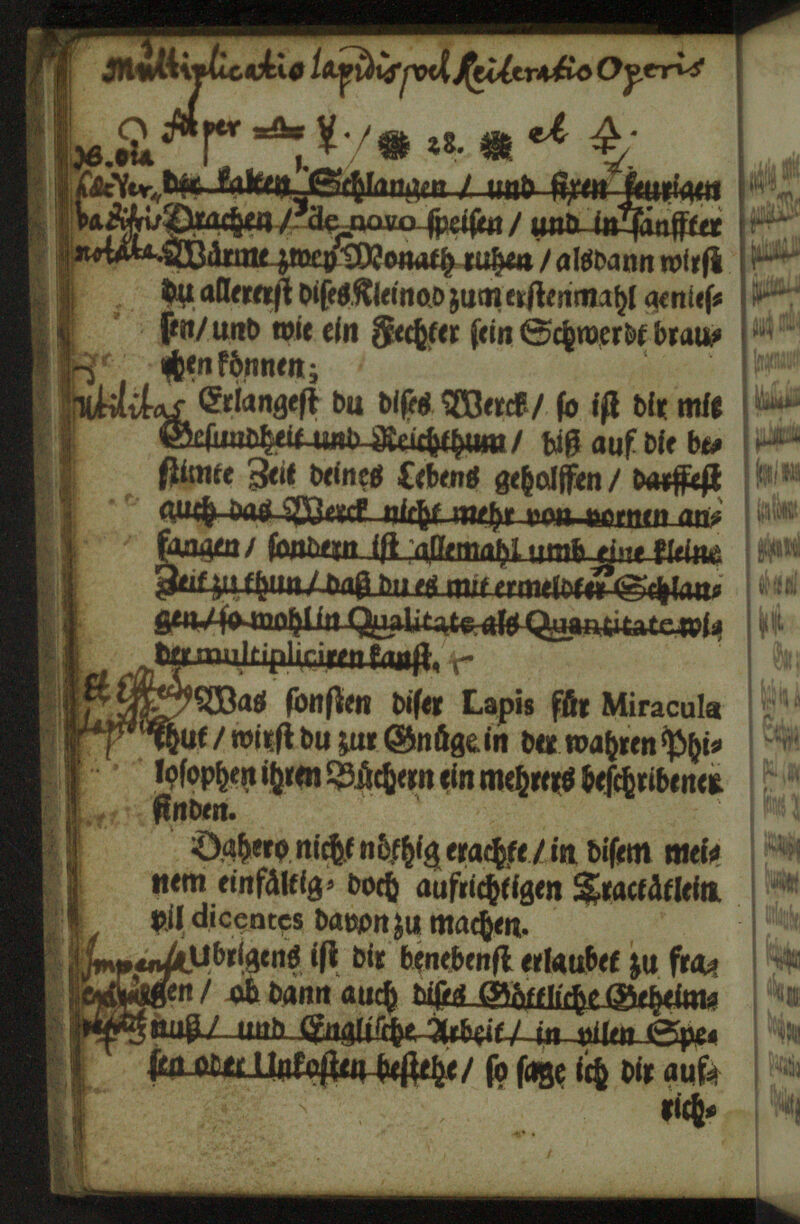 Multiplicatio lapidis vel Reiteratio Operis
per 28. et
der kalten Schlangen / und fixen feurigen
Drachen / de novo speisen / und in sänffter
notata. Wärme zwey Monath ruhen / alsdann wirst
du allererst dises Kleinod zum erstenmahl genies⸗
sen / und wie ein Fechter sein Schwerdt brau⸗
chen können;
utilitas Erlangest du dises Werck / so ist dir mit
Gesundheit und Reichthum / biß auf die be⸗
stimte Zeit deines Lebens geholffen / darffest
auch das Werck nicht mehr von vornen an⸗
fangen / sondern ist allemahl umb eine kleine
Zeit zu thun / daß du es mit ermeldter Schlan⸗
gen / so wohl in Qualitate als Quantitate wi⸗
der multipliciren kanst.
Was sonsten diser Lapis für Miracula
thut / wirst du zur Gnüge in der wahren Phi⸗
losophen ihren Büchern ein mehrers beschribener
finden.
Dahero nicht nöthig erachte / in disem mei⸗
nem einfältig⸗ doch aufrichtigen Tractätlein
vil dicentes davon zu machen.
Ubrigens ist dir benebenst erlaubet zu fra⸗
gen / ob dann auch dises Göttliche Geheim⸗
nuß / und Englische Arbeit / in vilen Spe⸗
sen oder Unkosten bestehe / so sage ich dir auf⸗
rich⸗